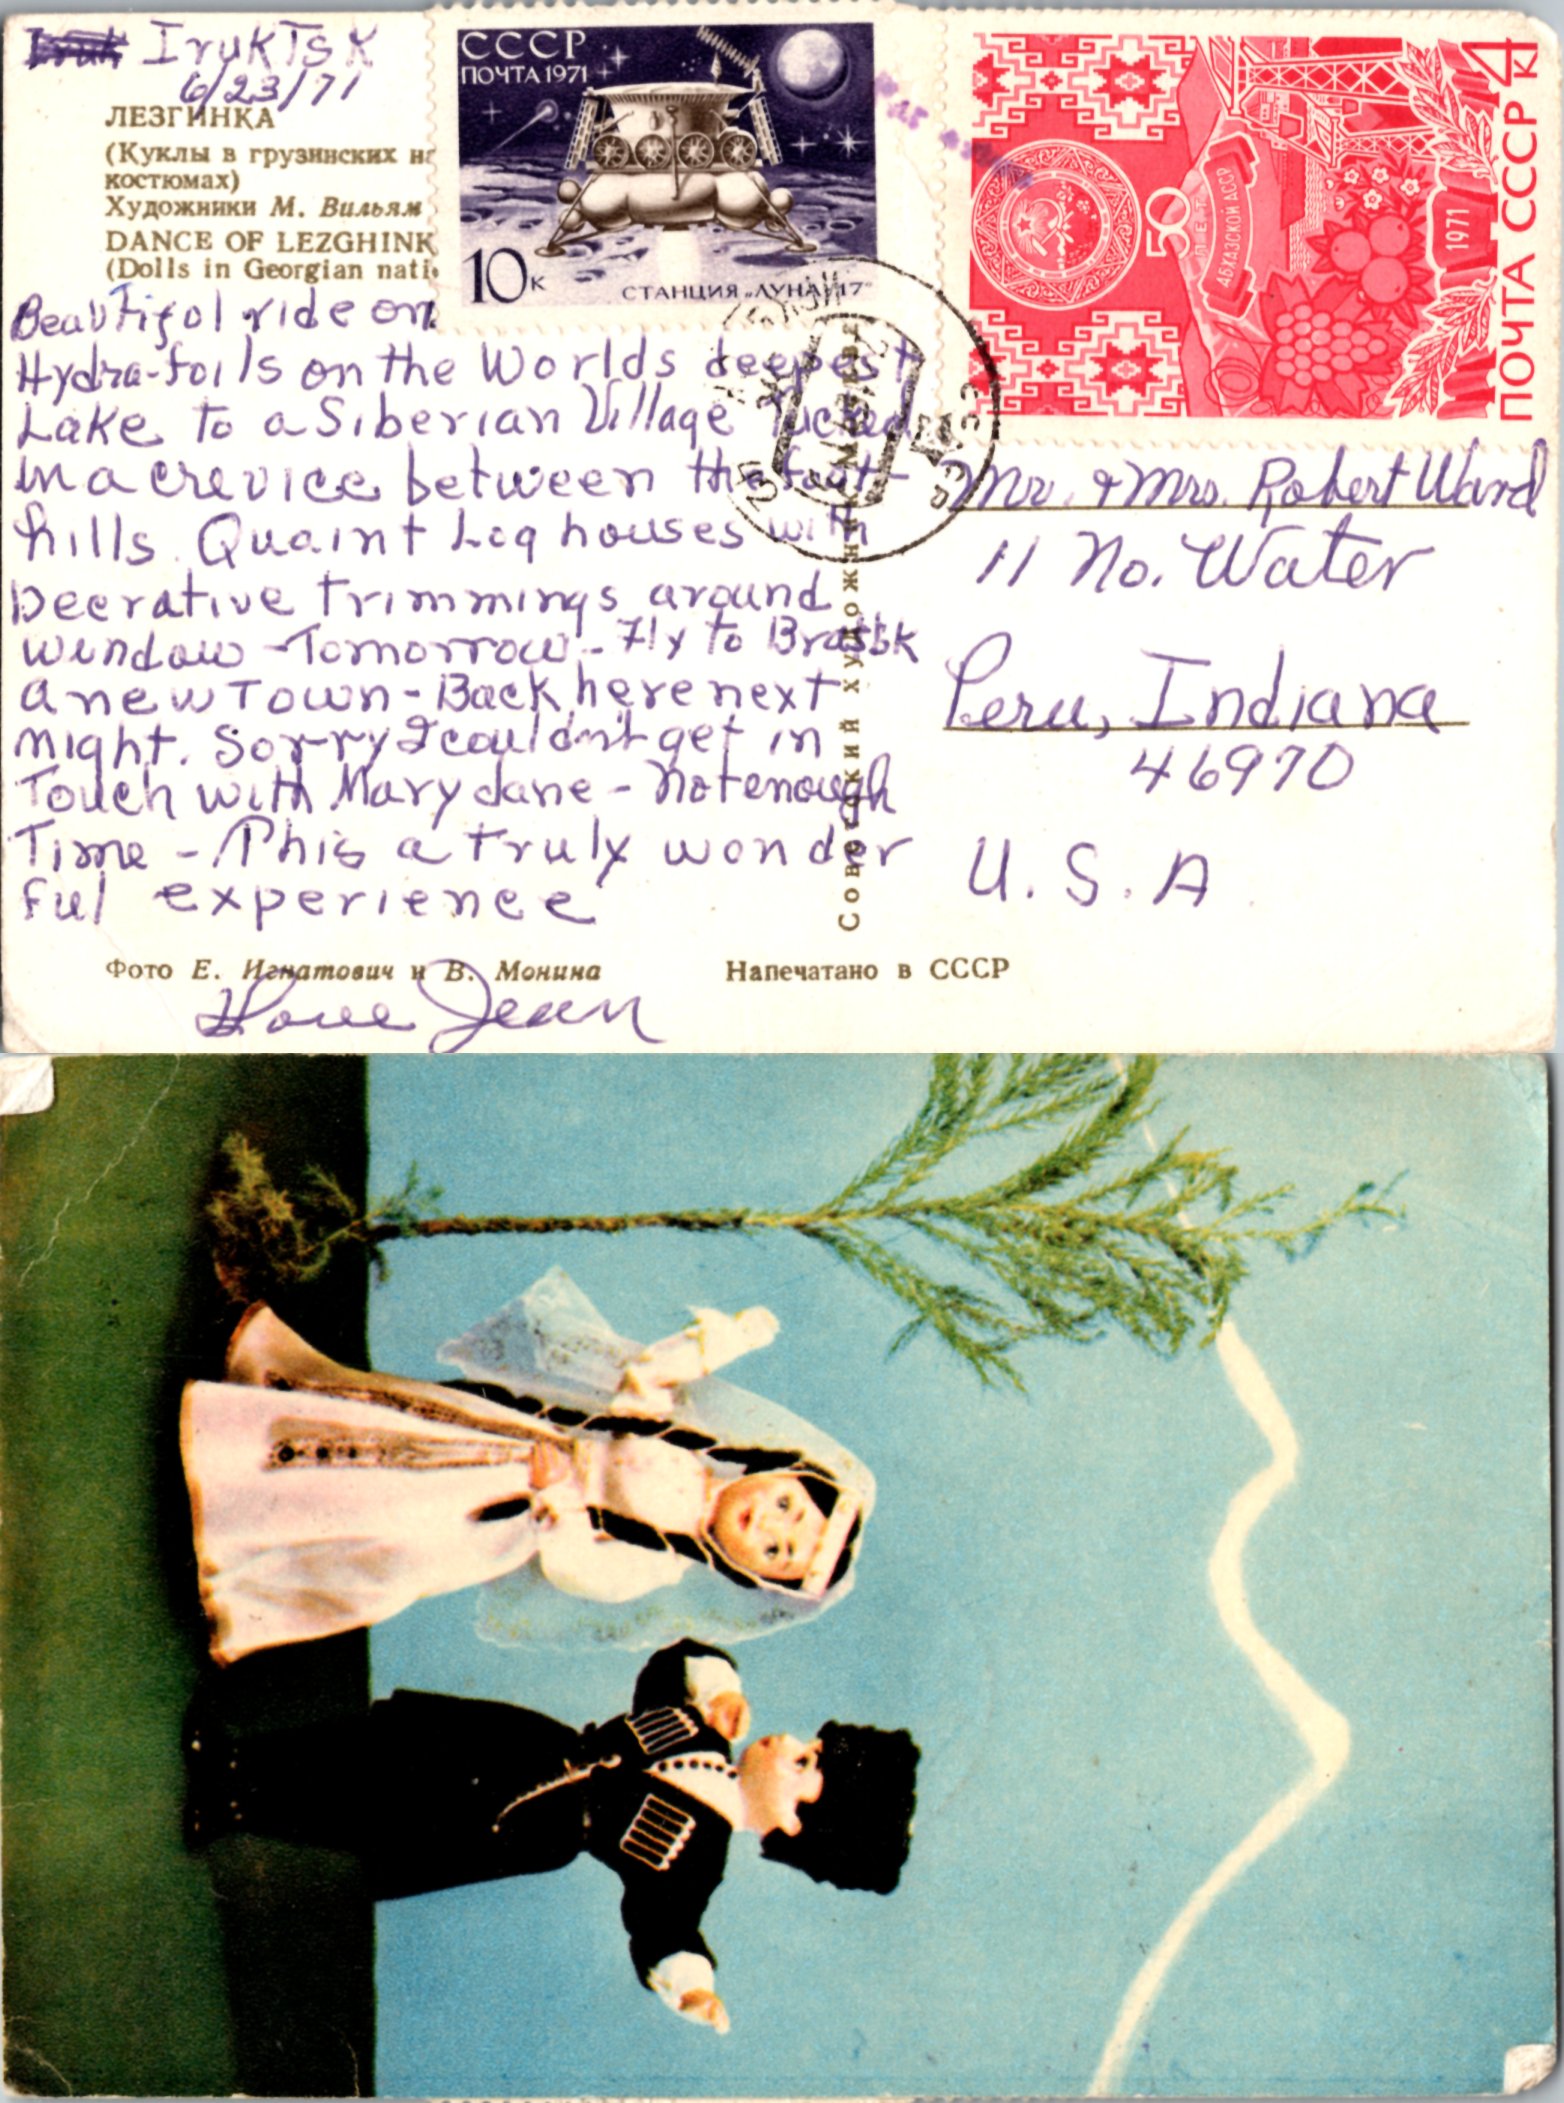 IrukTsk
6/23/71
ЛЕЗГИНКА
(Куклы в грузинских
костюмах)
Художники М. Вильям
DANCE OF LEZGHINK
(Dolls in Georgian nati
Beautifol ride on
Hydra-foils on the Worlds deepest
Lake to a Siberian Village Tucked
in a crevice between the foot-
hills. Quaint Log houses with
Decrative trimmings around
window - Tomorrow - Fly to Bratsk
a new Town - Back here next
night. Sorry I couldn't get in
Touch with Mary Jane - Not enough
Time - This a truly wonder
ful experience
Love Jean
Фото Е. Игнатович и В. Монина
Напечатано в СССР
Советский художник Москва
СССР
ПОЧТА 1971
10к
СТАНЦИЯ „ЛУНА-17"
ПОЧТА СССР 4к
1971
50
ЛЕТ
АБХАЗСКОЙ АССР
Mr. & Mrs. Robert Ward
11 No. Water
Peru, Indiana
46970
U.S.A